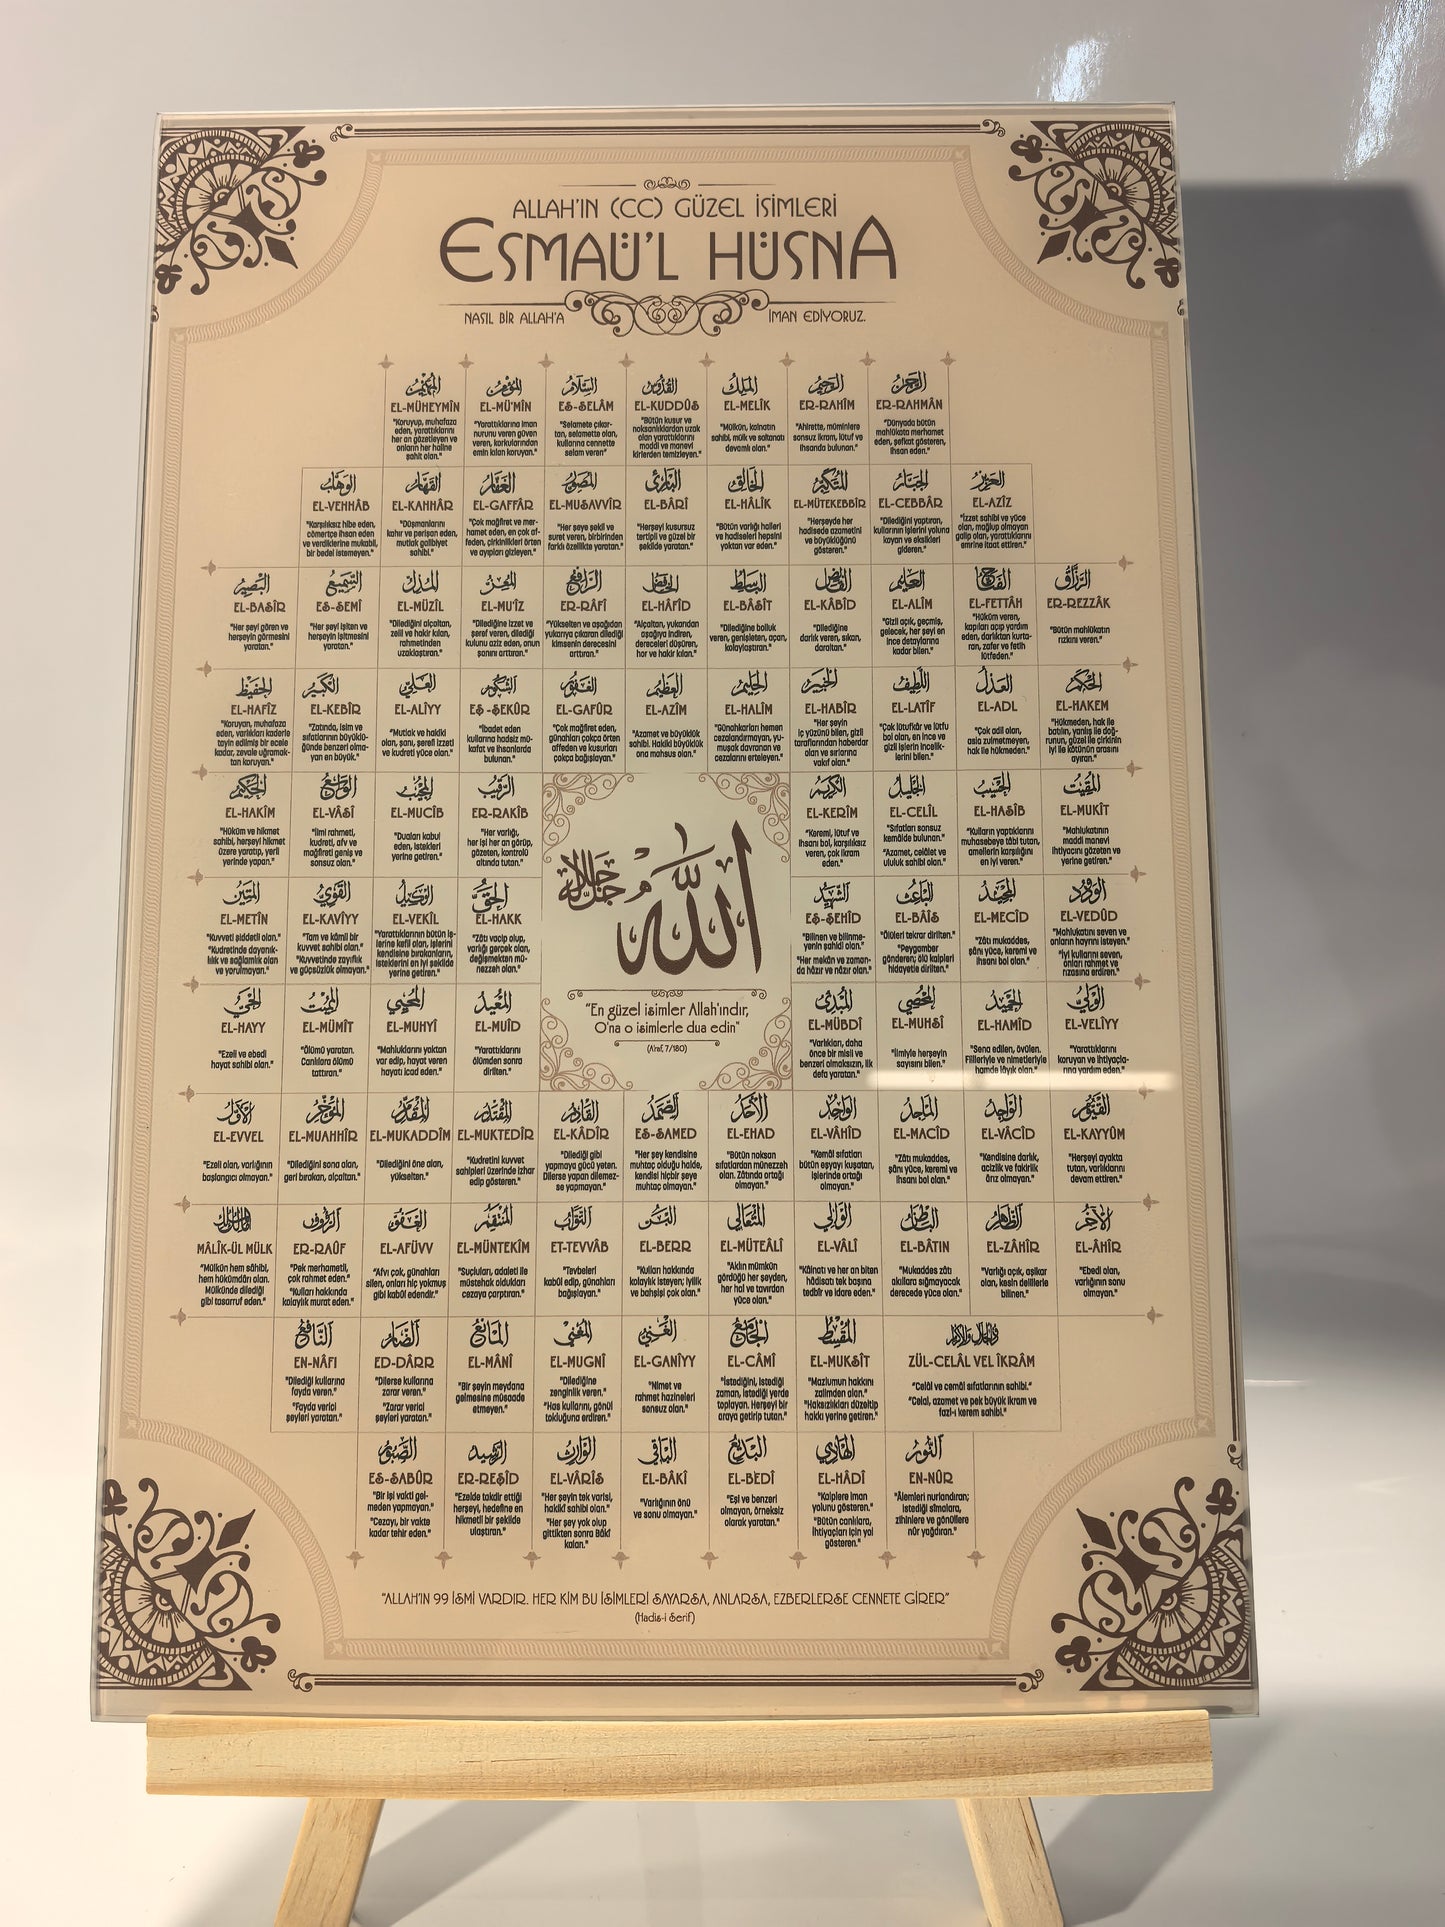 ALLAH'IN (CC) GÜZEL İSİMLERİ
ESMAÜ'L HÜSNA
NASIL BİR ALLAH'A İMAN EDİYORUZ.
الرحمن
ER-RAHMÂN
"Dünyada bütün
mahlûkata merhamet
eden, şefkat gösteren,
ihsan eden."
الرحيم
ER-RAHÎM
"Ahirette, müminlere
sonsuz ikram, lütuf ve
ihsanda bulunan."
الملك
EL-MELİK
"Mülkün, kainatın
sahibi, mülk ve saltanatı
devamlı olan."
القدوس
EL-KUDDÛS
"Bütün kusur ve
noksanlıklardan uzak
olan yarattıklarını
maddi ve manevi
kirlerden temizleyen."
السلام
ES-SELÂM
"Selamete çıkar-
tan, selamette olan,
kullarına cennette
selam veren"
المؤمن
EL-MÜ'MİN
"Yarattıklarına iman
nurunu veren güven
veren, korkularından
emin kılan koruyan."
المهيمن
EL-MÜHEYMİN
"Koruyup, muhafaza
eden, yarattıklarını
her an gözetleyen ve
onların her haline
şahit olan."
العزيز
EL-AZÎZ
"İzzet sahibi ve yüce
olan, mağlup olmayan
galip olan, yarattıklarını
emrine itaat ettiren."
الجبار
EL-CEBBÂR
"Dilediğini yaptıran,
kullarının işlerini yoluna
koyan ve eksikleri
gideren."
المتكبر
EL-MÜTEKEBBİR
"Herşeyde her
hadisede azametini
ve büyüklüğünü
gösteren."
الخالق
EL-HÂLİK
"Bütün varlığı halleri
ve hadiseleri hepsini
yoktan var eden."
البارئ
EL-BÂRÎ
"Herşeyi kusursuz
tertipli ve güzel bir
şekilde yaratan."
المصور
EL-MUSAVVİR
"Her şeye şekil ve
suret veren, birbirinden
farklı özellikte yaratan."
الغفار
EL-GAFFÂR
"Çok mağfiret ve mer-
hamet eden, en çok af-
feden, çirkinlikleri örten
ve ayıpları gizleyen."
القهار
EL-KAHHÂR
"Düşmanlarını
kahır ve perişan eden,
mutlak galibiyet
sahibi."
الوهاب
EL-VEHHÂB
"Karşılıksız hibe eden,
cömertçe ihsan eden
ve verdiklerine mukabil,
bir bedel istemeyen."
الرزاق
ER-REZZÂK
"Bütün mahlûkatın
rızkını veren."
الفتاح
EL-FETTÂH
"Hüküm veren,
kapıları açıp yardım
eden, darlıktan kurta-
ran, zafer ve fetih
lütfeden."
العليم
EL-ALÎM
"Gizli açık, geçmiş,
gelecek, her şeyi en
ince detaylarına
kadar bilen."
القابض
EL-KÂBİD
"Dilediğine
darlık veren, sıkan,
daraltan."
الباسط
EL-BÂSİT
"Dilediğine bolluk
veren, genişleten, açan,
kolaylaştıran."
الخافض
EL-HÂFİD
"Alçaltan, yukarıdan
aşağıya indiren,
dereceleri düşüren,
hor ve hakir kılan."
الرافع
ER-RÂFİ
"Yükselten ve aşağıdan
yukarıya çıkaran dilediği
kimsenin derecesini
arttıran."
المعز
EL-MU'İZ
"Dilediğine izzet ve
şeref veren, dilediği
kulunu aziz eden, onun
şanını arttıran."
المذل
EL-MÜZİL
"Dilediğini alçaltan,
zelil ve hakir kılan,
rahmetinden
uzaklaştıran."
السميع
ES-SEMÎ
"Her şeyi işiten ve
herşeyin işitmesini
yaratan."
البصير
EL-BASÎR
"Her şeyi gören ve
herşeyin görmesini
yaratan."
الحكم
EL-HAKEM
"Hükmeden, hak ile
batılın, yanlış ile doğ-
runun, güzel ile çirkinin
iyi ile kötünün arasını
ayıran."
العدل
EL-ADL
"Çok adil olan,
asla zulmetmeyen,
hak ile hükmeden."
اللطيف
EL-LATÎF
"Çok lütufkâr ve lütfu
bol olan, en ince ve
gizli işlerin incelik-
lerini bilen."
الخبير
EL-HABÎR
"Her şeyin
iç yüzünü bilen, gizli
taraflarından haberdar
olan ve sırlarına
vakıf olan."
الحليم
EL-HALÎM
"Günahkarları hemen
cezalandırmayan, yu-
muşak davranan ve
cezalarını erteleyen."
العظيم
EL-AZÎM
"Azamet ve büyüklük
sahibi. Hakiki büyüklük
ona mahsus olan."
الغفور
EL-GAFÛR
"Çok mağfiret eden,
günahları çokça örten
affeden ve kusurları
çokça bağışlayan."
الشكور
EŞ-ŞEKÛR
"İbadet eden
kullarına hadsiz mü-
kafat ve ihsanlarda
bulunan."
العلي
EL-ALİYY
"Mutlak ve hakiki
olan, şanı, şerefi izzeti
ve kudreti yüce olan."
الكبير
EL-KEBÎR
"Zatında, isim ve
sıfatlarının büyüklü-
ğünde benzeri olma-
yan en büyük."
الحفيظ
EL-HAFÎZ
"Koruyan, muhafaza
eden, varlıkları kaderle
tayin edilmiş bir ecele
kadar, zevale uğramak-
tan koruyan."
المقيت
EL-MUKÎT
"Mahlukatının
maddi manevi
ihtiyacını gözeten ve
yerine getiren."
الحسيب
EL-HASÎB
"Kulların yaptıklarını
muhasebeye tâbi tutan,
amellerin karşılığını
en iyi veren."
الجليل
EL-CELÎL
"Sıfatları sonsuz
kemâlde bulunan."
"Azamet, celâlet ve
ululuk sahibi olan."
الكريم
EL-KERÎM
"Keremi, lütuf ve
ihsanı bol, karşılıksız
veren, çok ikram
eden."
الرقيب
ER-RAKÎB
"Her varlığı,
her işi her an görüp,
gözeten, kontrolü
altında tutan."
المجيب
EL-MUCÎB
"Duaları kabul
eden, istekleri
yerine getiren."
الواسع
EL-VÂSİ
"İlmi rahmeti,
kudreti, afv ve
mağfireti geniş ve
sonsuz olan."
الحكيم
EL-HAKÎM
"Hüküm ve hikmet
sahibi, herşeyi hikmet
üzere yaratıp, yerli
yerinde yapan."
الله
جل جلاله
الودود
EL-VEDÛD
"Mahlukatını seven ve
onların hayrını isteyen."
"İyi kullarını seven,
onları rahmet ve
rızasına erdiren."
المجيد
EL-MECÎD
"Zâtı mukaddes,
şânı yüce, keremi ve
ihsanı bol olan."
الباعث
EL-BÂİS
"Ölüleri tekrar dirilten."
"Peygamber
gönderen; ölü kalpleri
hidayetle dirilten."
الشهيد
EŞ-ŞEHÎD
"Bilinen ve bilinme-
yenin şahidi olan."
"Her mekân ve zaman-
da hâzır ve nâzır olan."
الحق
EL-HAKK
"Zâtı vacip olup,
varlığı gerçek olan,
değişmekten mü-
nezzeh olan."
الوكيل
EL-VEKÎL
"Yarattıklarının bütün iş-
lerine kefil olan, işlerini
kendisine bırakanların,
isteklerini en iyi şekilde
yerine getiren."
القوي
EL-KAVİYY
"Tam ve kâmil bir
kuvvet sahibi olan."
"Kuvvetinde zayıflık
ve güçsüzlük olmayan."
المتين
EL-METÎN
"Kuvveti şiddetli olan."
"Kudretinde dayanık-
lılık ve sağlamlık olan
ve yorulmayan."
"En güzel isimler Allah'ındır,
O'na o isimlerle dua edin"
(A'raf, 7/180)
الولي
EL-VELİYY
"Yarattıklarını
koruyan ve ihtiyaçla-
rına yardım eden."
الحميد
EL-HAMÎD
"Sena edilen, övülen.
Fiilleriyle ve nimetleriyle
hamde lâyık olan."
المحصي
EL-MUHSÎ
"İlmiyle herşeyin
sayısını bilen."
المبدئ
EL-MÜBDÎ
"Varlıkları, daha
önce bir misli ve
benzeri olmaksızın, ilk
defa yaratan."
المعيد
EL-MUÎD
"Yarattıklarını
ölümden sonra
dirilten."
المحيي
EL-MUHYÎ
"Mahluklarını yoktan
var edip, hayat veren
hayatı icad eden."
المميت
EL-MÜMÎT
"Ölümü yaratan.
Canlılara ölümü
tattıran."
الحي
EL-HAYY
"Ezeli ve ebedi
hayat sahibi olan."
القيوم
EL-KAYYÛM
"Herşeyi ayakta
tutan, varlıklarını
devam ettiren."
الواجد
EL-VÂCİD
"Kendisine darlık,
acizlik ve fakirlik
ârız olmayan."
الماجد
EL-MACİD
"Zâtı mukaddes,
şânı yüce, keremi ve
ihsanı bol olan."
الواحد
EL-VÂHİD
"Kemâl sıfatları
bütün eşyayı kuşatan,
işlerinde ortağı
olmayan."
الأحد
EL-EHAD
"Bütün noksan
sıfatlardan münezzeh
olan. Zâtında ortağı
olmayan."
الصمد
ES-SAMED
"Her şey kendisine
muhtaç olduğu halde,
kendisi hiçbir şeye
muhtaç olmayan."
القادر
EL-KÂDİR
"Dilediği gibi
yapmaya gücü yeten.
Dilerse yapan dilemez-
se yapmayan."
المقتدر
EL-MUKTEDİR
"Kudretini kuvvet
sahipleri üzerinde izhar
edip gösteren."
المقدم
EL-MUKADDİM
"Dilediğini öne alan,
yükselten."
المؤخر
EL-MUAHHİR
"Dilediğini sona alan,
geri bırakan, alçaltan."
الأول
EL-EVVEL
"Ezeli olan, varlığının
başlangıcı olmayan."
الآخر
EL-ÂHİR
"Ebedi olan,
varlığının sonu
olmayan."
الظاهر
EL-ZÂHİR
"Varlığı açık, aşikar
olan, kesin delillerle
bilinen."
الباطن
EL-BÂTIN
"Mukaddes zâtı
akıllara sığmayacak
derecede yüce olan."
الوالي
EL-VÂLİ
"Kâinatı ve her an biten
hâdisatı tek başına
tedbîr ve idare eden."
المتعالي
EL-MÜTEÂLÎ
"Aklın mümkün
gördüğü her şeyden,
her hal ve tavırdan
yüce olan."
البر
EL-BERR
"Kulları hakkında
kolaylık isteyen; iyilik
ve bahşişi çok olan."
التواب
ET-TEVVÂB
"Tevbeleri
kabûl edip, günahları
bağışlayan."
المنتقم
EL-MÜNTEKİM
"Suçluları, adaleti ile
müstehak oldukları
cezaya çarptıran."
العفو
EL-AFÜVV
"Afvı çok, günahları
silen, onları hiç yokmuş
gibi kabûl edendir."
الرؤوف
ER-RAÛF
"Pek merhametli,
çok rahmet eden."
"Kulları hakkında
kolaylık murat eden."
مالك الملك
MÂLİK-ÜL MÜLK
"Mülkün hem sâhibi,
hem hükümdârı olan.
Mülkünde dilediği
gibi tasarruf eden."
ذو الجلال والإكرام
ZÜL-CELÂL VEL İKRÂM
"Celâl ve cemâl sıfatlarının sahibi."
"Celal, azamet ve pek büyük ikram ve
fazl-ı kerem sahibi."
المقسط
EL-MUKSİT
"Mazlumun hakkını
zalimden alan."
"Haksızlıkları düzeltip
hakkı yerine getiren."
الجامع
EL-CÂMİ
"İstediğini, istediği
zaman, istediği yerde
toplayan. Herşeyi bir
araya getirip tutan."
الغني
EL-GANİYY
"Nimet ve
rahmet hazineleri
sonsuz olan."
المغني
EL-MUGNÎ
"Dilediğine
zenginlik veren."
"Has kullarını, gönül
tokluğuna erdiren."
المانع
EL-MÂNİ
"Bir şeyin meydana
gelmesine müsaade
etmeyen."
الضار
ED-DÂRR
"Dilerse kullarına
zarar veren."
"Zarar verici
şeyleri yaratan."
النافع
EN-NÂFİ
"Dilediği kullarına
fayda veren."
"Fayda verici
şeyleri yaratan."
النور
EN-NÛR
"Âlemleri nurlandıran;
istediği sîmalara,
zihinlere ve gönüllere
nûr yağdıran."
الهادي
EL-HÂDÎ
"Kalplere iman
yolunu gösteren."
"Bütün canlılara,
ihtiyaçları için yol
gösteren."
البديع
EL-BEDÎ
"Eşi ve benzeri
olmayan, örneksiz
olarak yaratan."
الباقي
EL-BÂKÎ
"Varlığının önü
ve sonu olmayan."
الوارث
EL-VÂRİS
"Her şeyin tek varisi,
hakikî sahibi olan."
"Her şey yok olup
gittikten sonra Bâkî
kalan."
الرشيد
ER-REŞÎD
"Ezelde takdir ettiği
herşeyi, hedefine en
hikmetli bir şekilde
ulaştıran."
الصبور
ES-SABÛR
"Bir işi vakti gel-
meden yapmayan."
"Cezayı, bir vakte
kadar tehir eden."
"ALLAH'IN 99 İSMİ VARDIR. HER KİM BU İSİMLERİ SAYARSA, ANLARSA, EZBERLERSE CENNETE GİRER"
(Hadis-i Şerif)